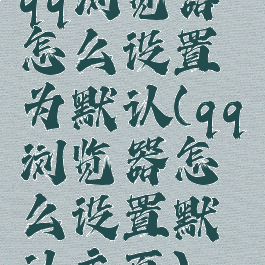 qq浏览器
怎么设置
为默认(qq
浏览器怎
么设置默
认主页)